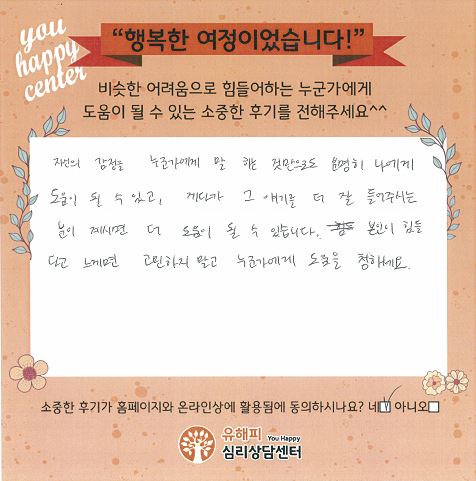 you
happy
center
“행복한 여정이었습니다!”
비슷한 어려움으로 힘들어하는 누군가에게
도움이 될 수 있는 소중한 후기를 전해주세요^^
자신의 감정을 누군가에게 말 하는 것만으로도 분명히 나에게
도움이 될 수 있고, 게다가 그 얘기를 더 잘 들어주시는
분이 계시면 더 도움이 될 수 있습니다. 본인이 힘들
다고 느끼면 고민하지 말고 누군가에게 도움을 청하세요.
소중한 후기가 홈페이지와 온라인상에 활용됨에 동의하시나요? 네 아니오
유해피 You Happy
심리상담센터